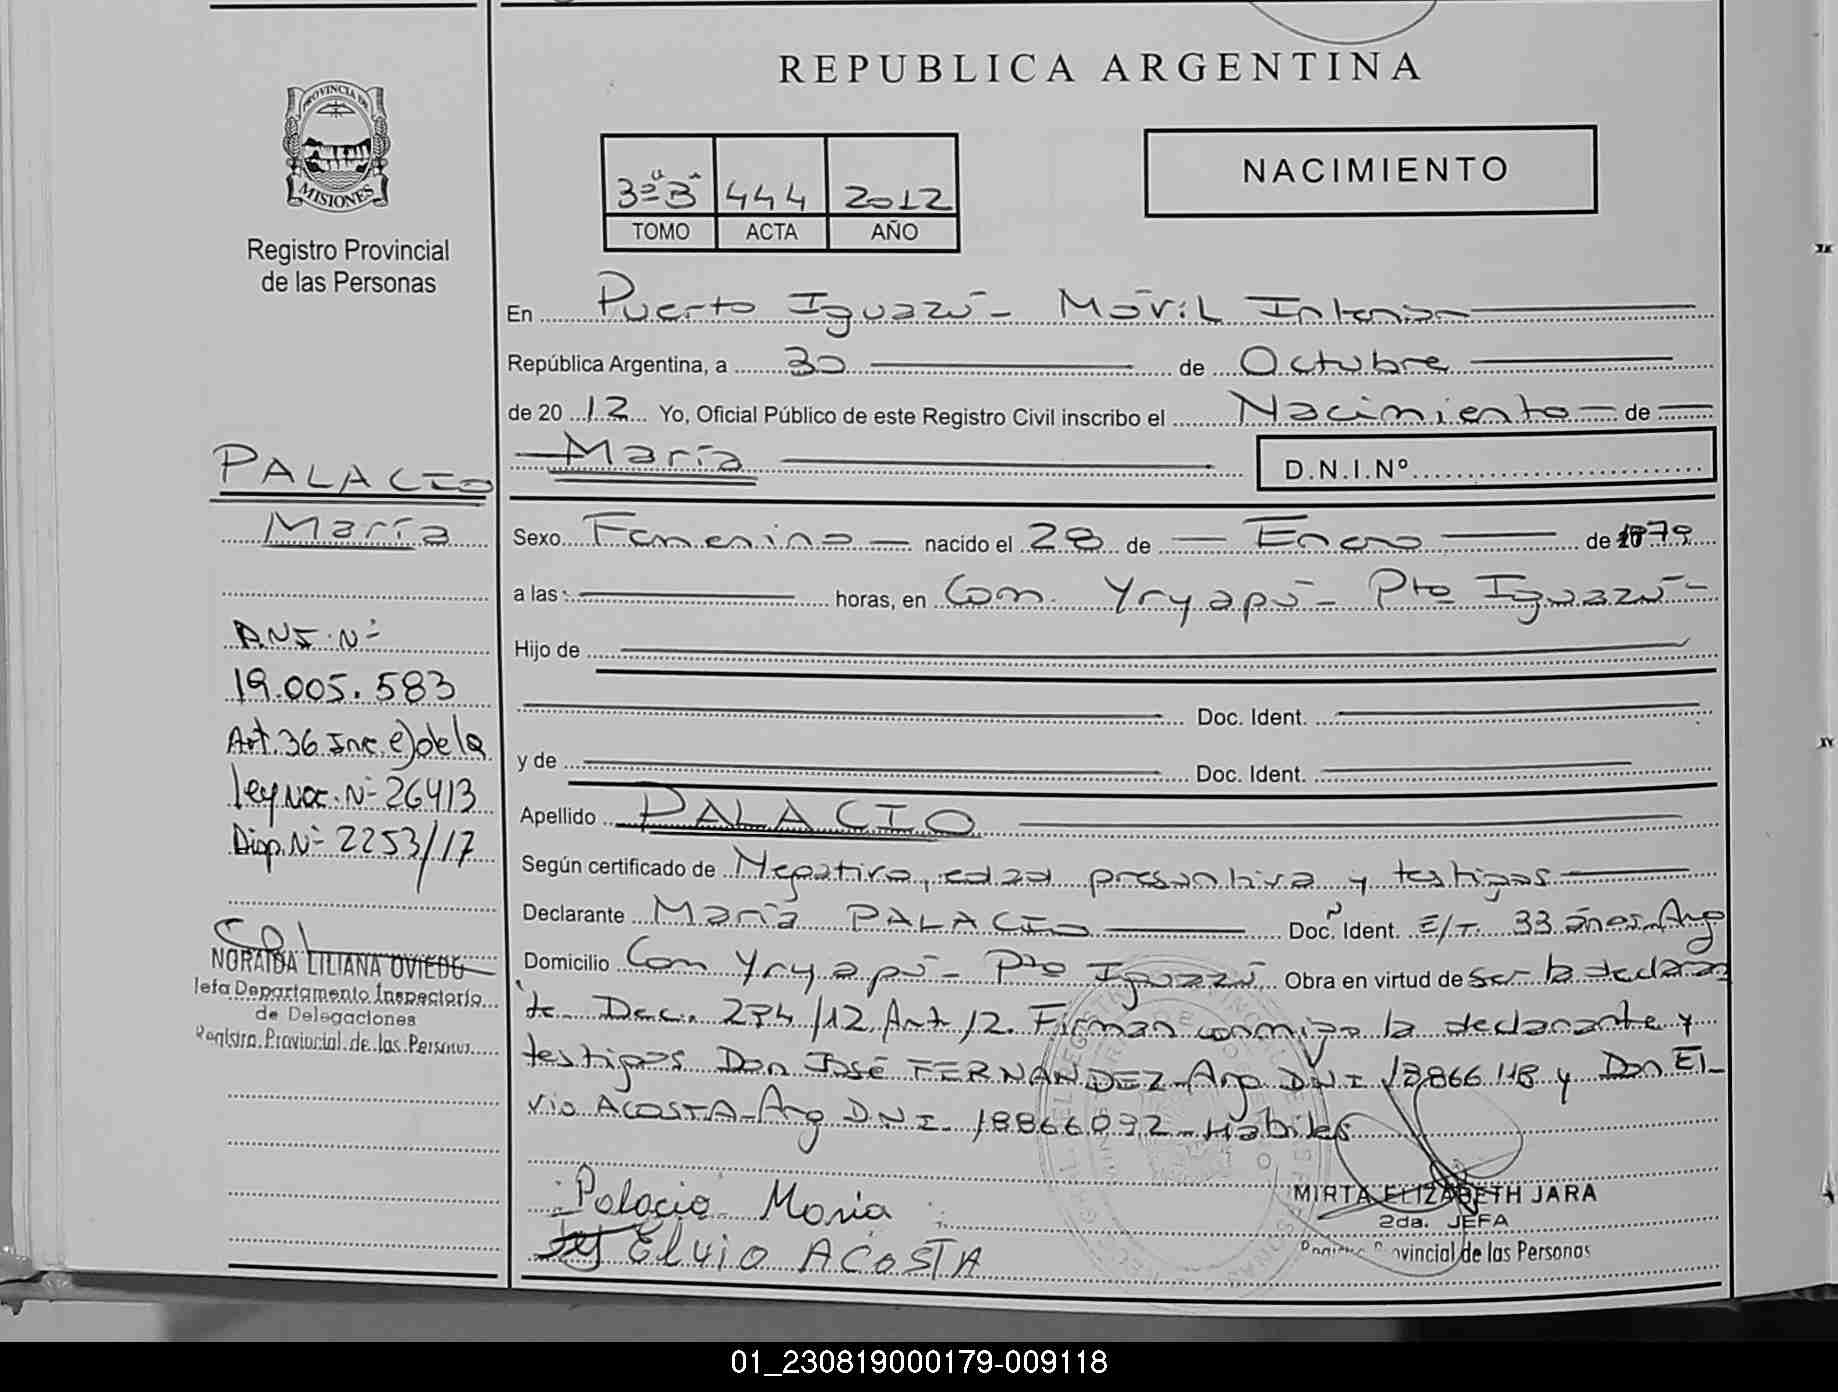 REPUBLICA ARGENTINA
PROVINCIA DE
MISIONES
Registro Provincial
de las Personas
3º "B" 444 2012
TOMO ACTA AÑO
NACIMIENTO
En Puerto Iguazú - Móvil Interior
República Argentina, a 30 de Octubre
de 2012 Yo, Oficial Público de este Registro Civil inscribo el Nacimiento de
María
D.N.I.Nº
PALACIO
María
D.N.I. Nº
19.005.583
Art. 36 Inc. e) de la
ley Nac. Nº 26413
Disp. Nº 2253/17
NORAIDA LILIANA OVIEDO
Jefa Departamento Inspectoría
de Delegaciones
Registro Provincial de las Personas
Sexo Femenino nacido el 28 de Enero de 1979
a las horas, en Com. Yryapú - Pto Iguazú -
Hijo de
Doc. Ident.
y de Doc. Ident.
Apellido PALACIO
Según certificado de Negativo, edad presuntiva y testigos
Declarante María PALACIO Doc. Ident. E/T. 33 años - Arg
Domicilio Com Yryapú - Pto Iguazú Obra en virtud de ser la declaran
te. Dec. 274/12 Art 12. Firman conmigo la declarante y
testigos Don José FERNÁNDEZ - Arg D.N.I 18866118 y Don El-
vio ACOSTA - Arg D.N.I. 18866092 - Hábiles
Palacio Maria
Elvio ACOSTA
MIRTA ELIZABETH JARA
2da. JEFA
Registro Provincial de las Personas
01_230819000179-009118